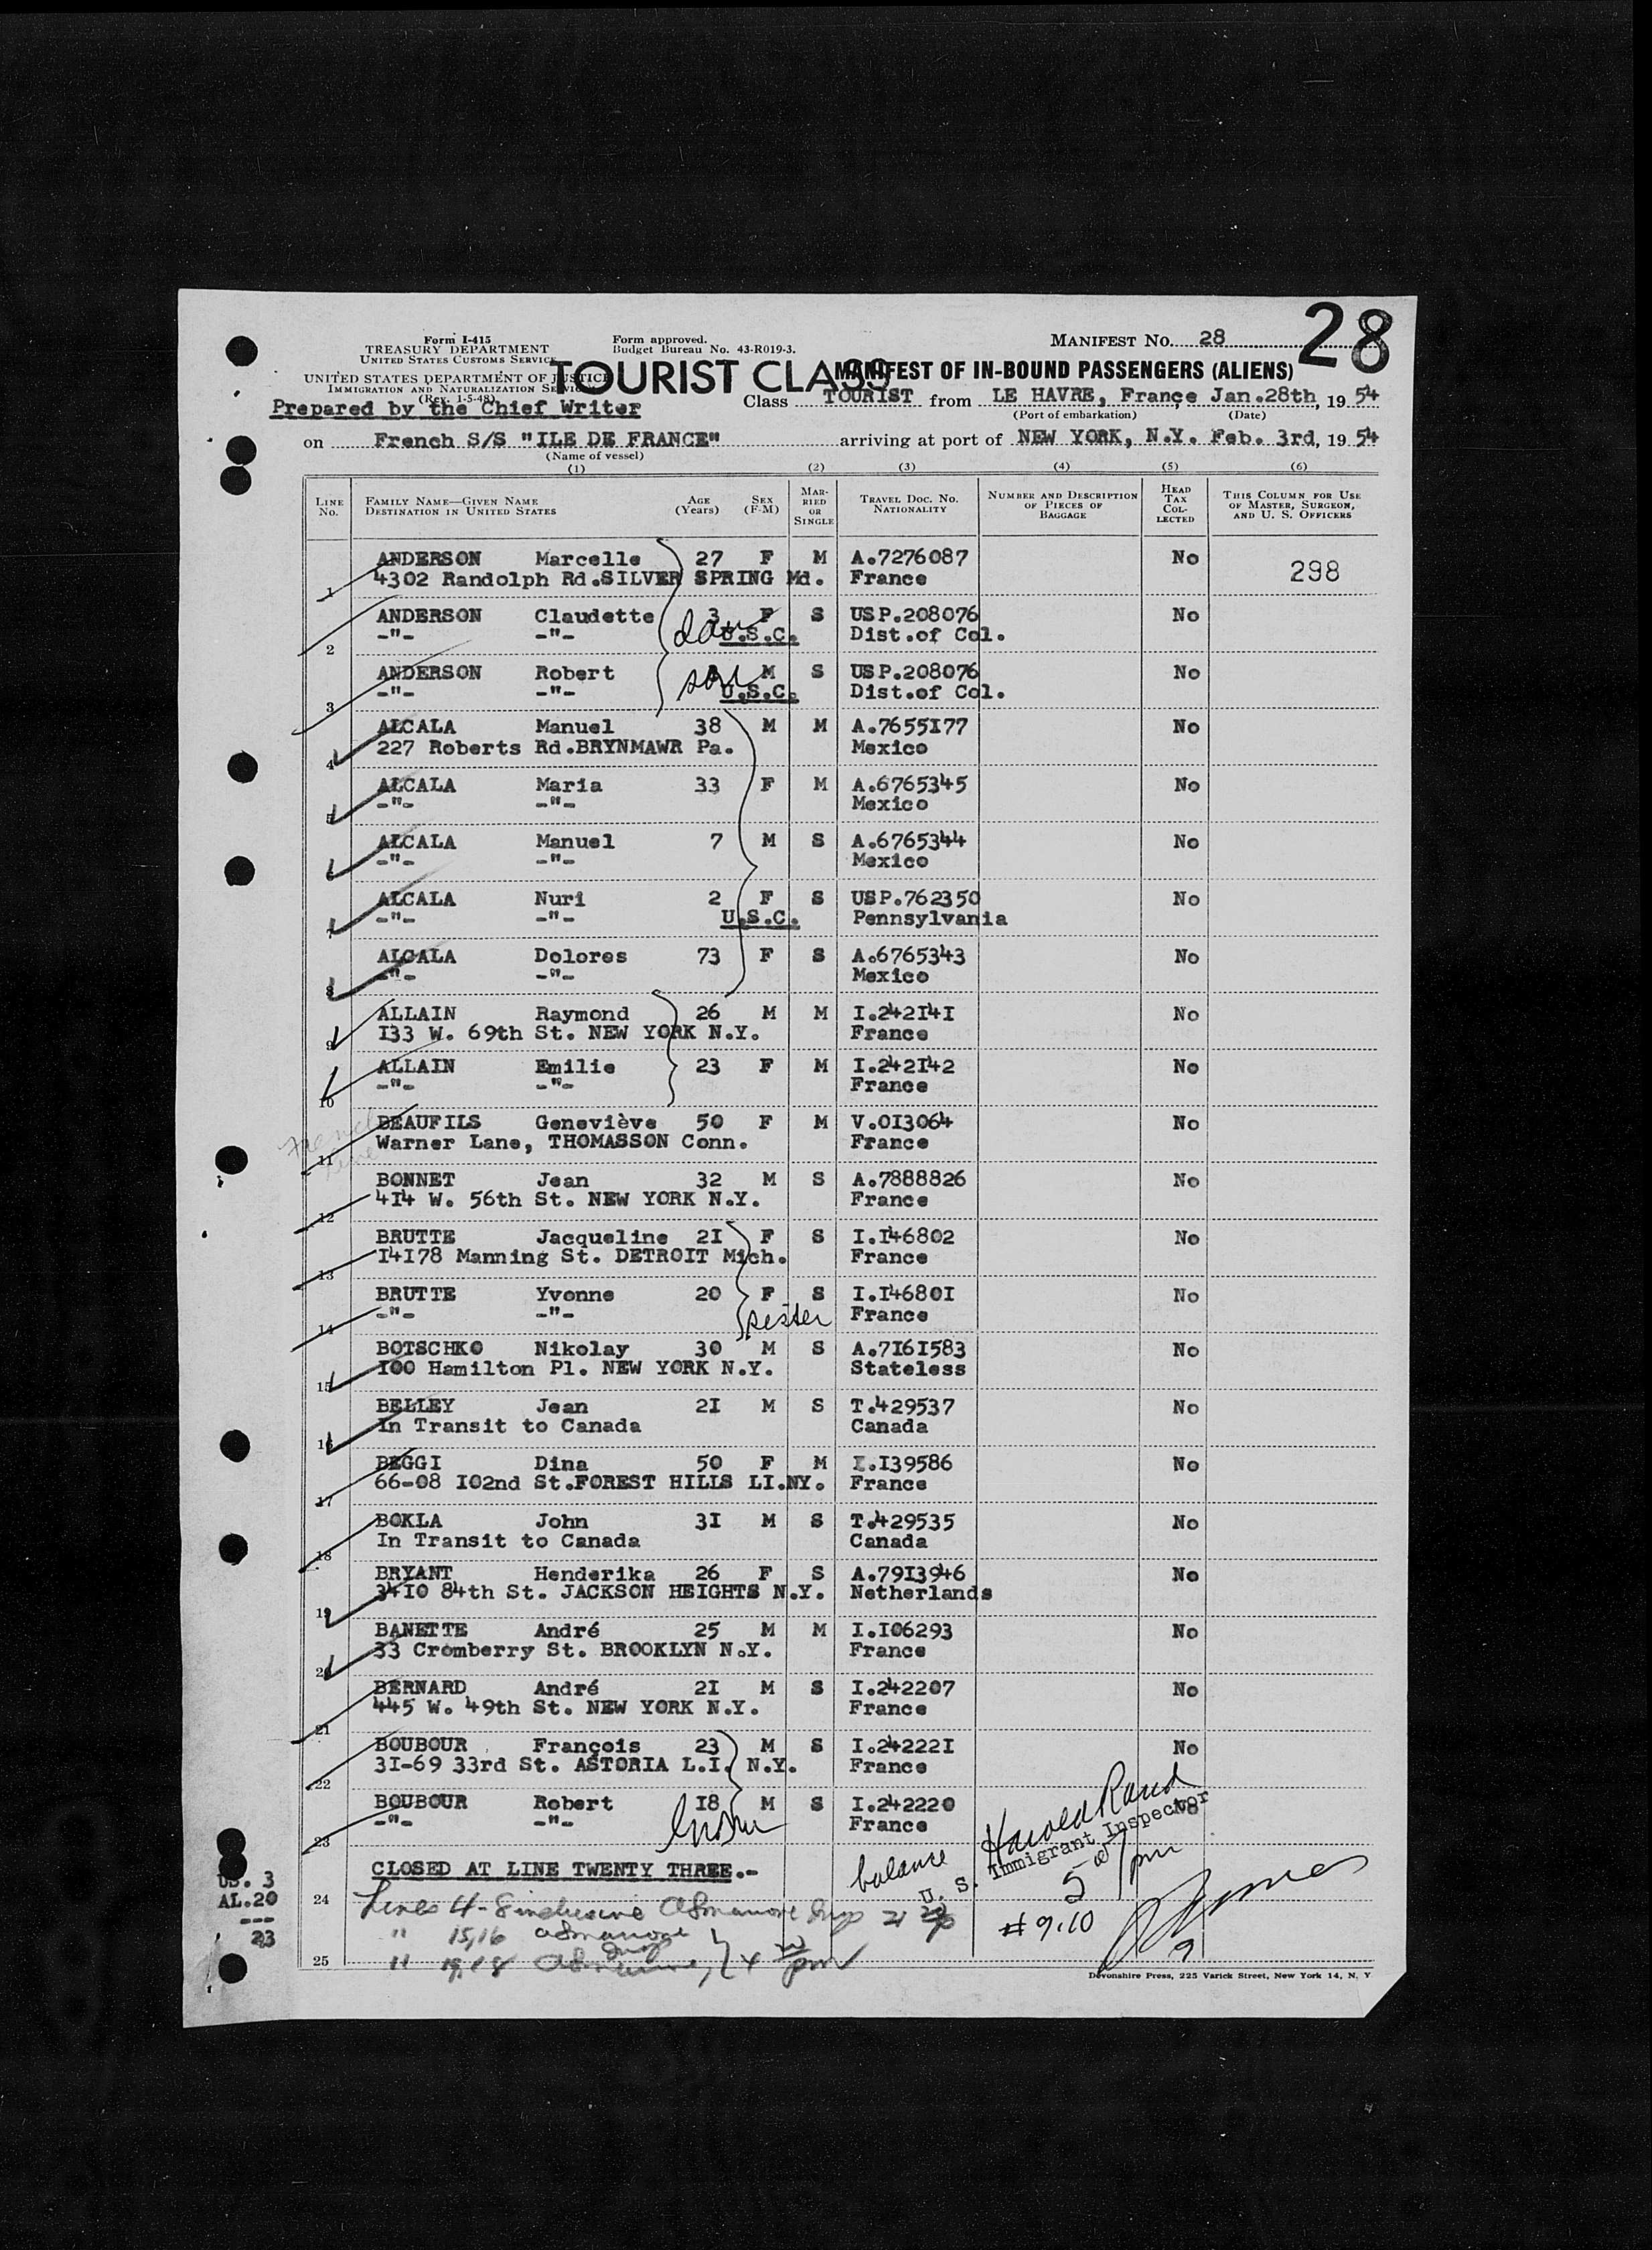 28
Form I-415
TREASURY DEPARTMENT
UNITED STATES CUSTOMS SERVICE
UNITED STATES DEPARTMENT OF JUSTICE
IMMIGRATION AND NATURALIZATION SERVICE
(Rev. 1-5-48)
Form approved.
Budget Bureau No. 43-R019-3.
MANIFEST No. 28
TOURIST CLASS
MANIFEST OF IN-BOUND PASSENGERS (ALIENS)
Prepared by the Chief Writer
Class TOURIST from LE HAVRE, France Jan.28th, 1954
(Port of embarkation) (Date)
on French S/S "ILE DE FRANCE" arriving at port of NEW YORK, N.Y. Feb. 3rd, 1954
(Name of vessel)
(1) (2) (3) (4) (5) (6)
LINE No. FAMILY NAME—GIVEN NAME DESTINATION IN UNITED STATES AGE (Years) SEX (F-M) MARRIED OR SINGLE TRAVEL DOC. NO. NATIONALITY NUMBER AND DESCRIPTION OF PIECES OF BAGGAGE HEAD TAX COLLECTED THIS COLUMN FOR USE OF MASTER, SURGEON, AND U. S. OFFICERS
ANDERSON Marcelle 27 F M A.7276087 No
1 4302 Randolph Rd.SILVER SPRING Md. France 298
ANDERSON Claudette 3 F S USP.208076 No
2 -"- -"- dau U.S.C. Dist.of Col.
ANDERSON Robert son M S USP.208076 No
3 -"- -"- U.S.C. Dist.of Col.
ALCALA Manuel 38 M M A.7655I77 No
4 227 Roberts Rd.BRYNMAWR Pa. Mexico
ALCALA Maria 33 F M A.6765345 No
5 -"- -"- Mexico
ALCALA Manuel 7 M S A.6765344 No
6 -"- -"- Mexico
ALCALA Nuri 2 F S USP.762350 No
7 -"- -"- U.S.C. Pennsylvania
ALCALA Dolores 73 F S A.6765343 No
8 -"- -"- Mexico
ALLAIN Raymond 26 M M I.242I4I No
9 I33 W. 69th St. NEW YORK N.Y. France
ALLAIN Emilie 23 F M I.242I42 No
10 -"- -"- France
BEAUFILS Geneviève 50 F M V.0I3064 No
11 Warner Lane, THOMASSON Conn. France
BONNET Jean 32 M S A.7888826 No
12 4I4 W. 56th St. NEW YORK N.Y. France
BRUTTE Jacqueline 2I F S I.I46802 No
13 I4I78 Manning St. DETROIT Mich. France
BRUTTE Yvonne 20 F S I.I4680I No
14 -"- -"- sister France
BOTSCHKO Nikolay 30 M S A.7I6I583 No
15 I00 Hamilton Pl. NEW YORK N.Y. Stateless
BELLEY Jean 2I M S T.429537 No
16 In Transit to Canada Canada
BEGGI Dina 50 F M I.I39586 No
17 66-08 I02nd St.FOREST HILLS LI.NY. France
BOKLA John 3I M S T.429535 No
18 In Transit to Canada Canada
BRYANT Henderika 26 F S A.79I3946 No
19 34I0 84th St. JACKSON HEIGHTS N.Y. Netherlands
BANETTE André 25 M M I.I06293 No
20 33 Cromberry St. BROOKLYN N.Y. France
BERNARD André 2I M S I.242207 No
21 445 W. 49th St. NEW YORK N.Y. France
BOUBOUR François 23 M S I.24222I No
22 3I-69 33rd St. ASTORIA L.I. N.Y. France
BOUBOUR Robert I8 M S I.242220 No
23 -"- -"- France
CLOSED AT LINE TWENTY THREE.-
balance Harold Rand
U. S. Immigrant Inspector
5 pm
US. 3
AL.20
---
23
24 Lines 4-8 inclusive
" 15,16
# 9.10
25 " pm
Devonshire Press, 225 Varick Street, New York 14, N. Y